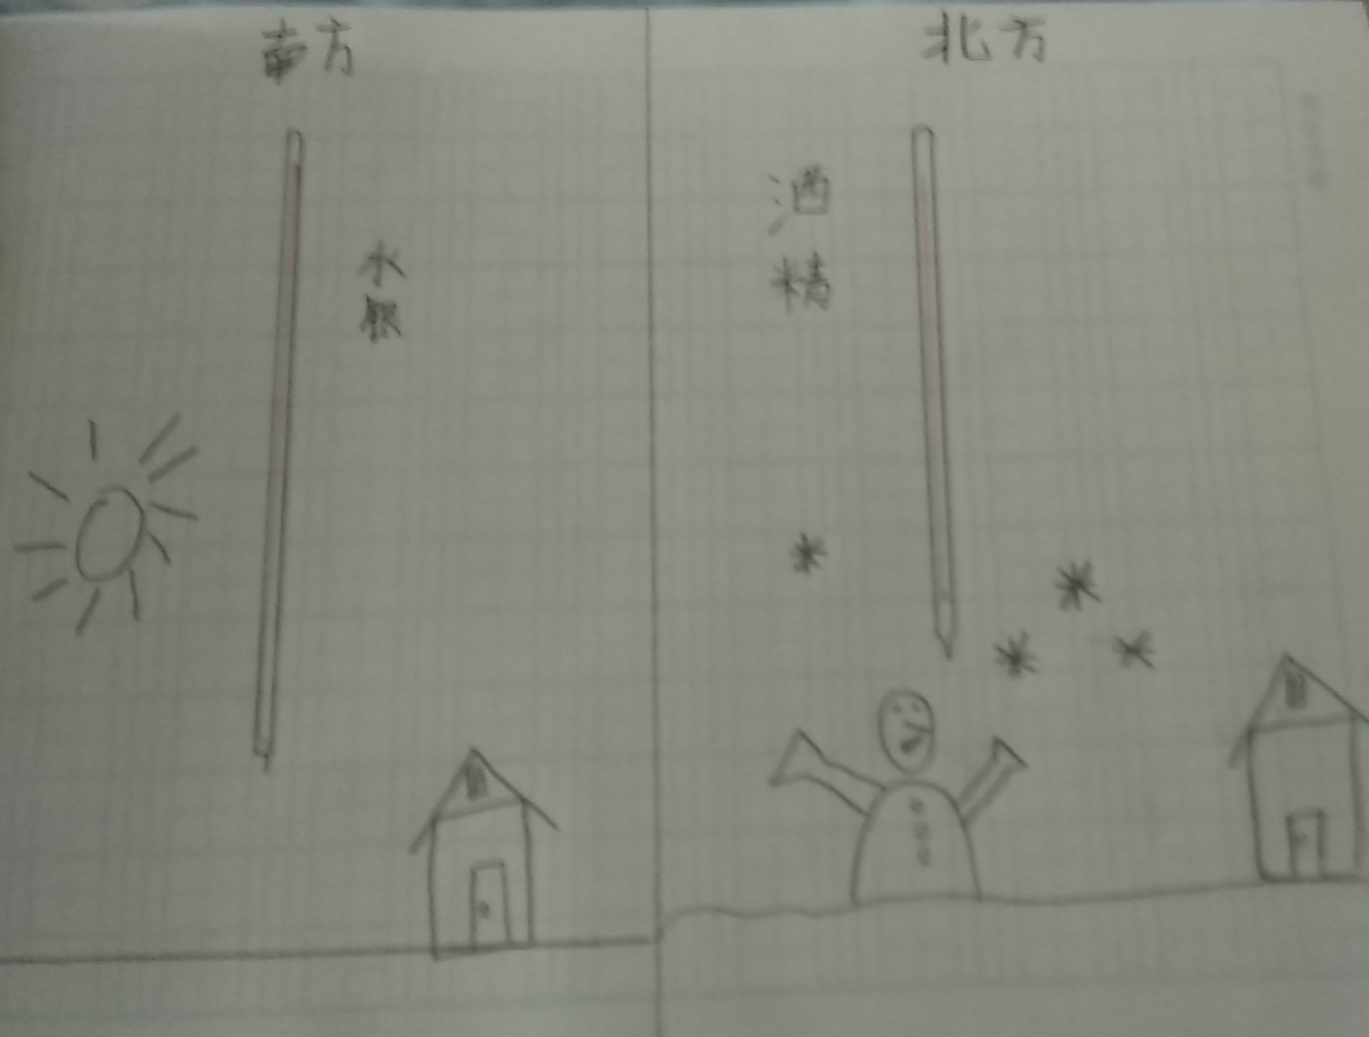 南方
水银
北方
酒精